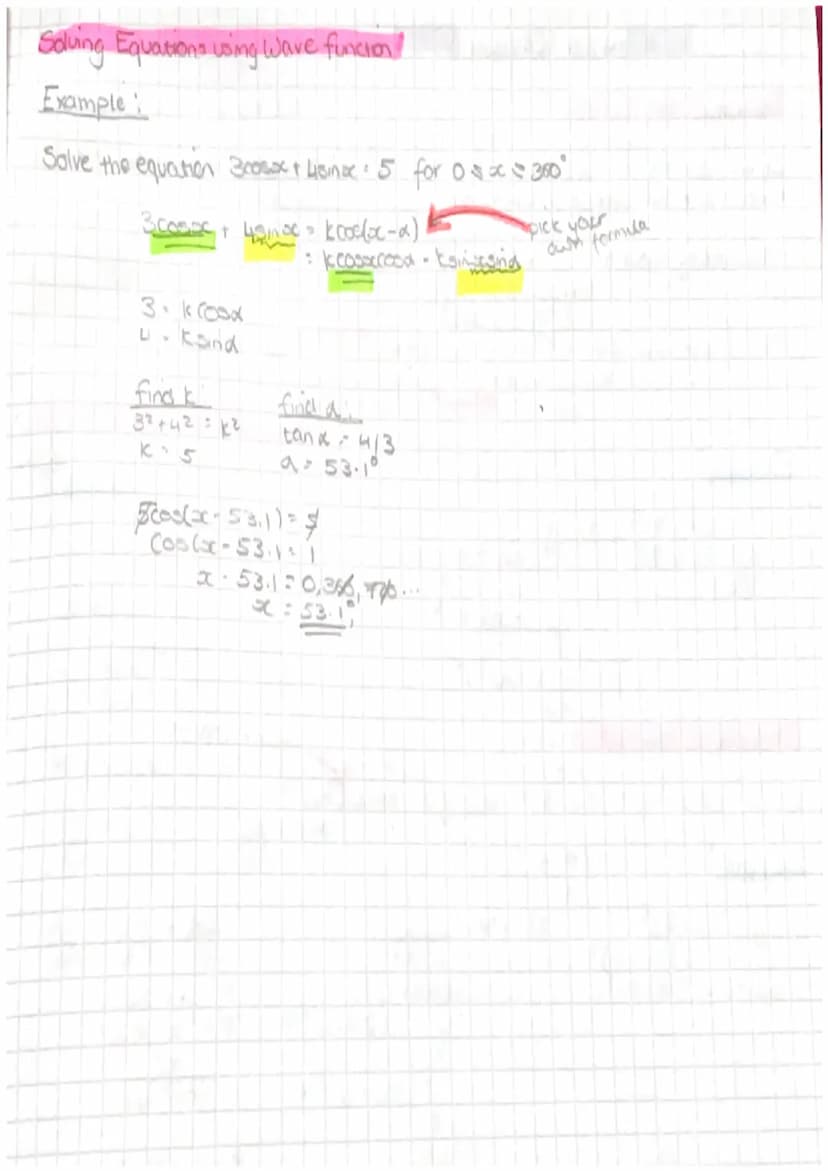 Solving Equations using Wave function
Example:
Solve the equation 3cosx + 4sinx = 5 for 0 ≤ x ≤ 360°
3cosx + 4sinx = kcos(x-α)
pick your own formula
= kcosxcosα - ksinxsinα
3 = kcosα
4 = ksinα
find k
3² + 4² = k²
k = 5
find α
tanα = 4/3
α = 53.1°
5cos(x - 53.1) = 5
cos(x - 53.1 = 1
x - 53.1 = 0, 360, 720...
x = 53.1°